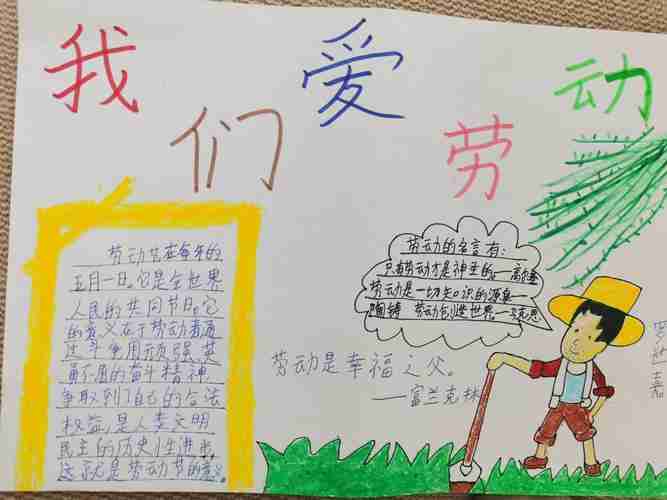 我们爱劳动
劳动节在每年的
五月一日。它是全世界
人民的共同节日。它
的意义在于劳动者通
过斗争用顽强、英
勇不屈的奋斗精神
争取到了自己的合法
权益,是人类文明
民主的历史性进步
这就是劳动节的意义。
劳动的名言有:
只有劳动才是神圣的——高尔基
劳动是一切知识的源泉——
陶铸 劳动创造世界——马克思
劳动是幸福之父。
——富兰克林